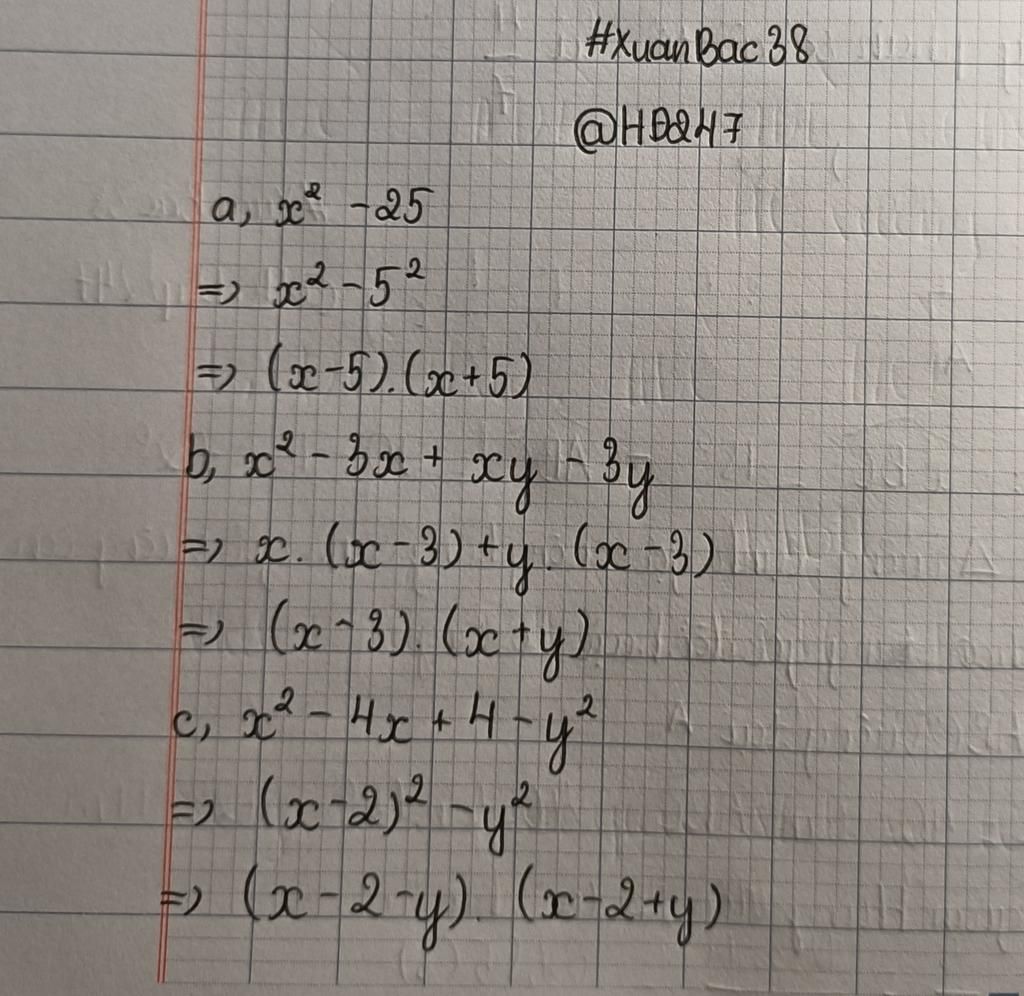 #XuanBac38
@HD247
a, x² - 25
=> x² - 5²
=> (x-5).(x+5)
b, x² - 3x + xy - 3y
=> x. (x-3) + y. (x-3)
=> (x-3). (x+y)
c, x² - 4x + 4 - y²
=> (x-2)² - y²
=> (x-2-y). (x-2+y)